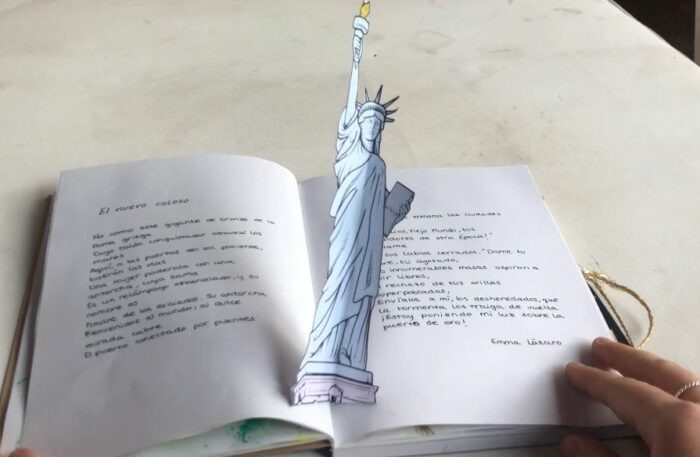 El nuevo coloso
No como este gigante de bronce de la
fama griega
Cuyo talón conquistador atravesó los
mares
Aquí, a las puertas del sol poniente,
batirán las olas
Una mujer poderosa con una
antorcha, cuya llama
Es un relámpago encarcelado, y su
nombre es
Madre de los exiliados. Su antorcha
Bienvenidos al mundo; su dulce
mirada cubre
El puerto conectado por puentes
las ciudades
Viejo Mundo, tus
de otra época!"
sus labios cerrados. "Dame tu
tu agotado,
innumerables masas aspiran a
libres,
rechazo de tus orillas
superpobladas,
Envíalos a mí, los desheredados, que
la tormenta los traiga de vuelta
¡Estoy poniendo mi luz sobre la
puerta de oro!
Emma Lázaro